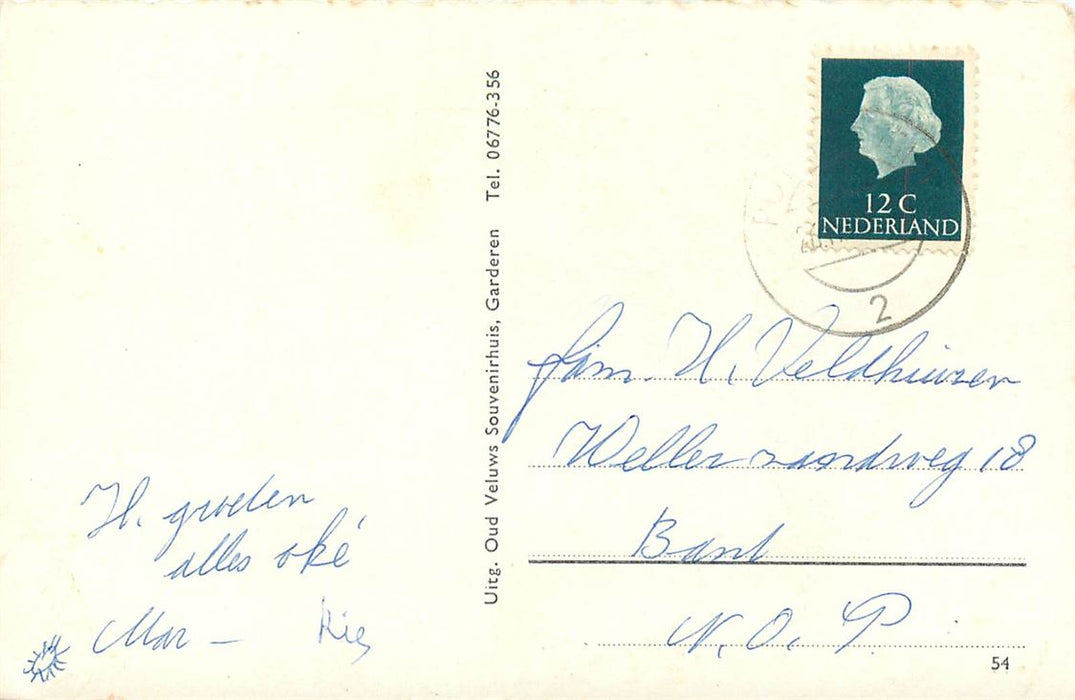 H. groeten
alles oké
Mar – Ries
Uitg. Oud Veluws Souvenirhuis, Garderen Tel. 06776-356
12 C
NEDERLAND
2
fam. H. Veldhuizen
Wellerzandweg 18
Bant
N.O.P.
54